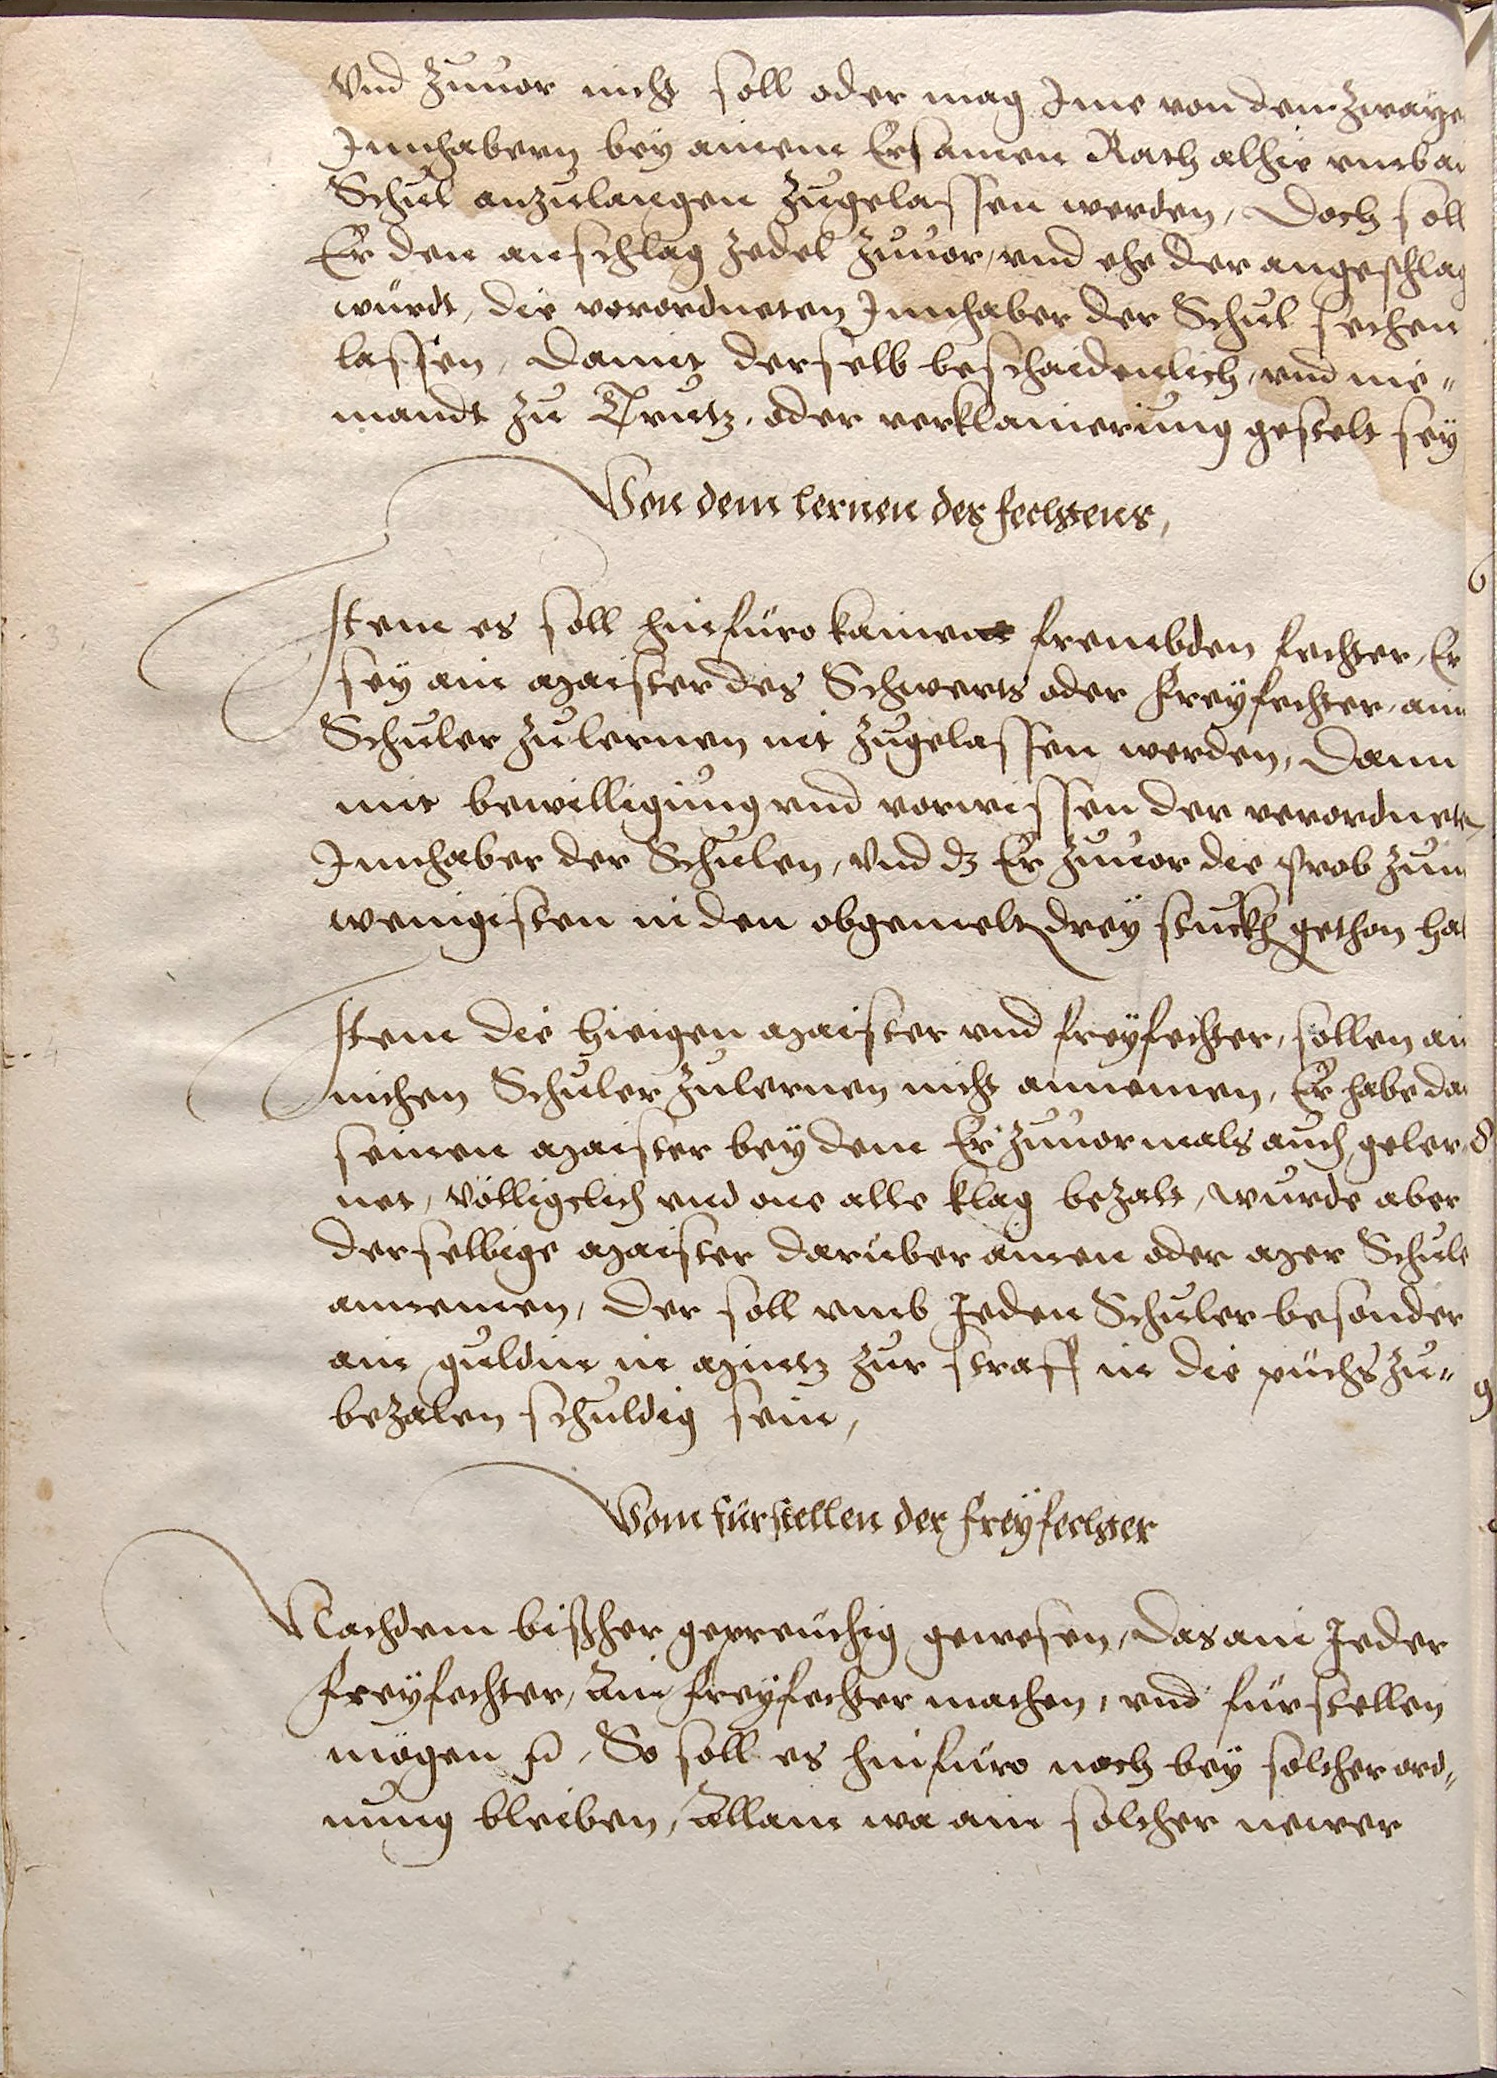 Vnd zuuor nicht soll oder mag Ime von den zwaye
Innhabern bey ainem Ersamen Rath alhie vmb ai
Schul anzulangen zugelassen werden, Doch soll
Er den anschlag zedel zuuor, vnd ehe der angeschlag
würdt, die verordneten Innhaber der Schul sechen
lassen, Damit derselb beschaidenlich, vnd nie-
mandt zu Trutz, oder verklainerung gestelt sey
Von dem lernen des fechtens,
Item es soll hinfüro kainem frembden fechter, Er
sey ain maister des Schwerts oder Freyfechter, ain
Schuler zulernen nit zugelassen werden, Dann
mit bewilligung vnd vorwissen der verordnete
Innhaber der Schulen, Vnd dz Er zuuor die prob zum
wenigisten in den obgemelt drey stuckh gethon hab
Item die hieigen maister vnd freyfechter, sollen ai
nichen Schuler zulernen nicht annemen, Er habe dan
seinem maister bey dem Er zuuormals auch geler
net, völligclich vnd one alle klag bezalt, wurde aber
derselbige maister daruber ainen oder mer Schule
annemen, Der soll vmb Jeden Schuler besonder
ain guldin in müntz zur straff in die püchs zu-
bezalen schuldig sein,
Vom fürstellen der freyfechter
Nachdem bißher gepreuchig gewesen, das ain Jeder
freyfechter, Ain freyfechter machen, vnd fürstellen
mögen, So soll es hinfüro noch bey solcher ord-
nung bleiben, Allain wa ain solcher newer